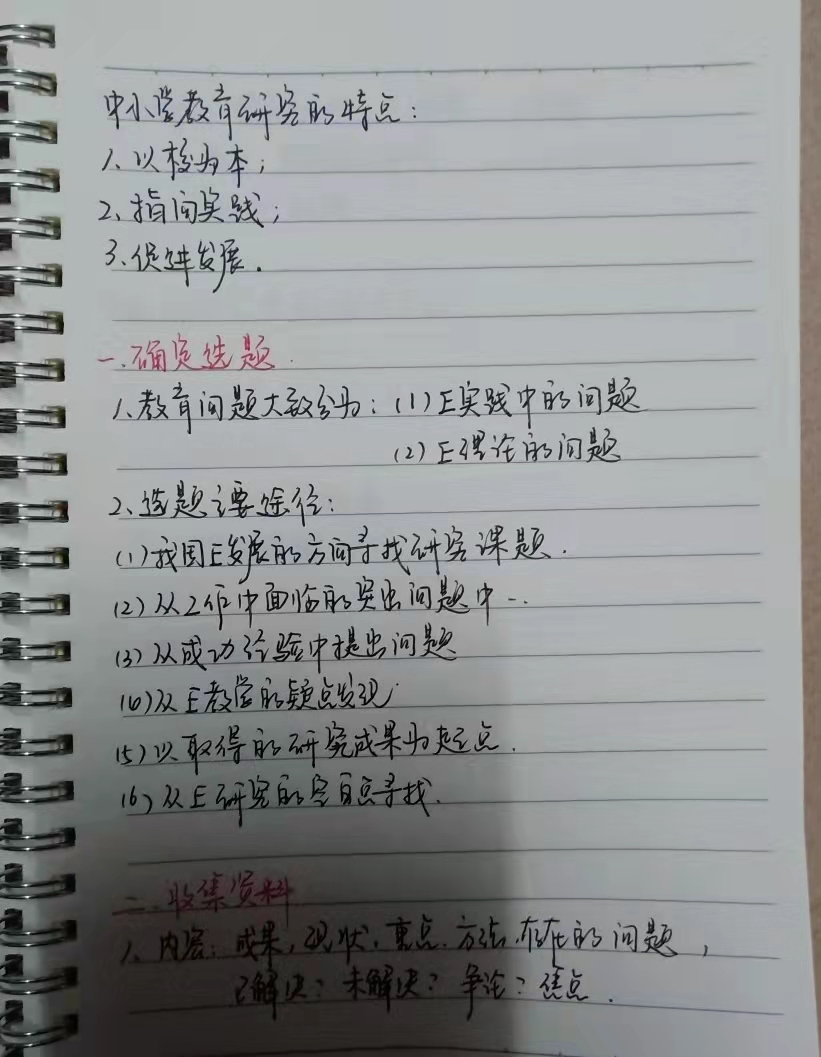 中小学教育研究的特点：
1、以校为本；
2、指向实践；
3、促进发展.
一.确定选题.
1、教育问题大致分为：(1)E实践中的问题
(2)E理论的问题
2、选题主要途径：
(1)我国E发展的方向寻找研究课题.
(2)从工作中面临的突出问题中…
(3)从成功经验中提出问题
(4)从E教学的疑点发现
(5)以取得的研究成果为起点.
(6)从E研究的空白点寻找.
二.收集资料
1、内容：成果，现状.重点.方法.存在的问题，
已解决？未解决？争论？焦点.